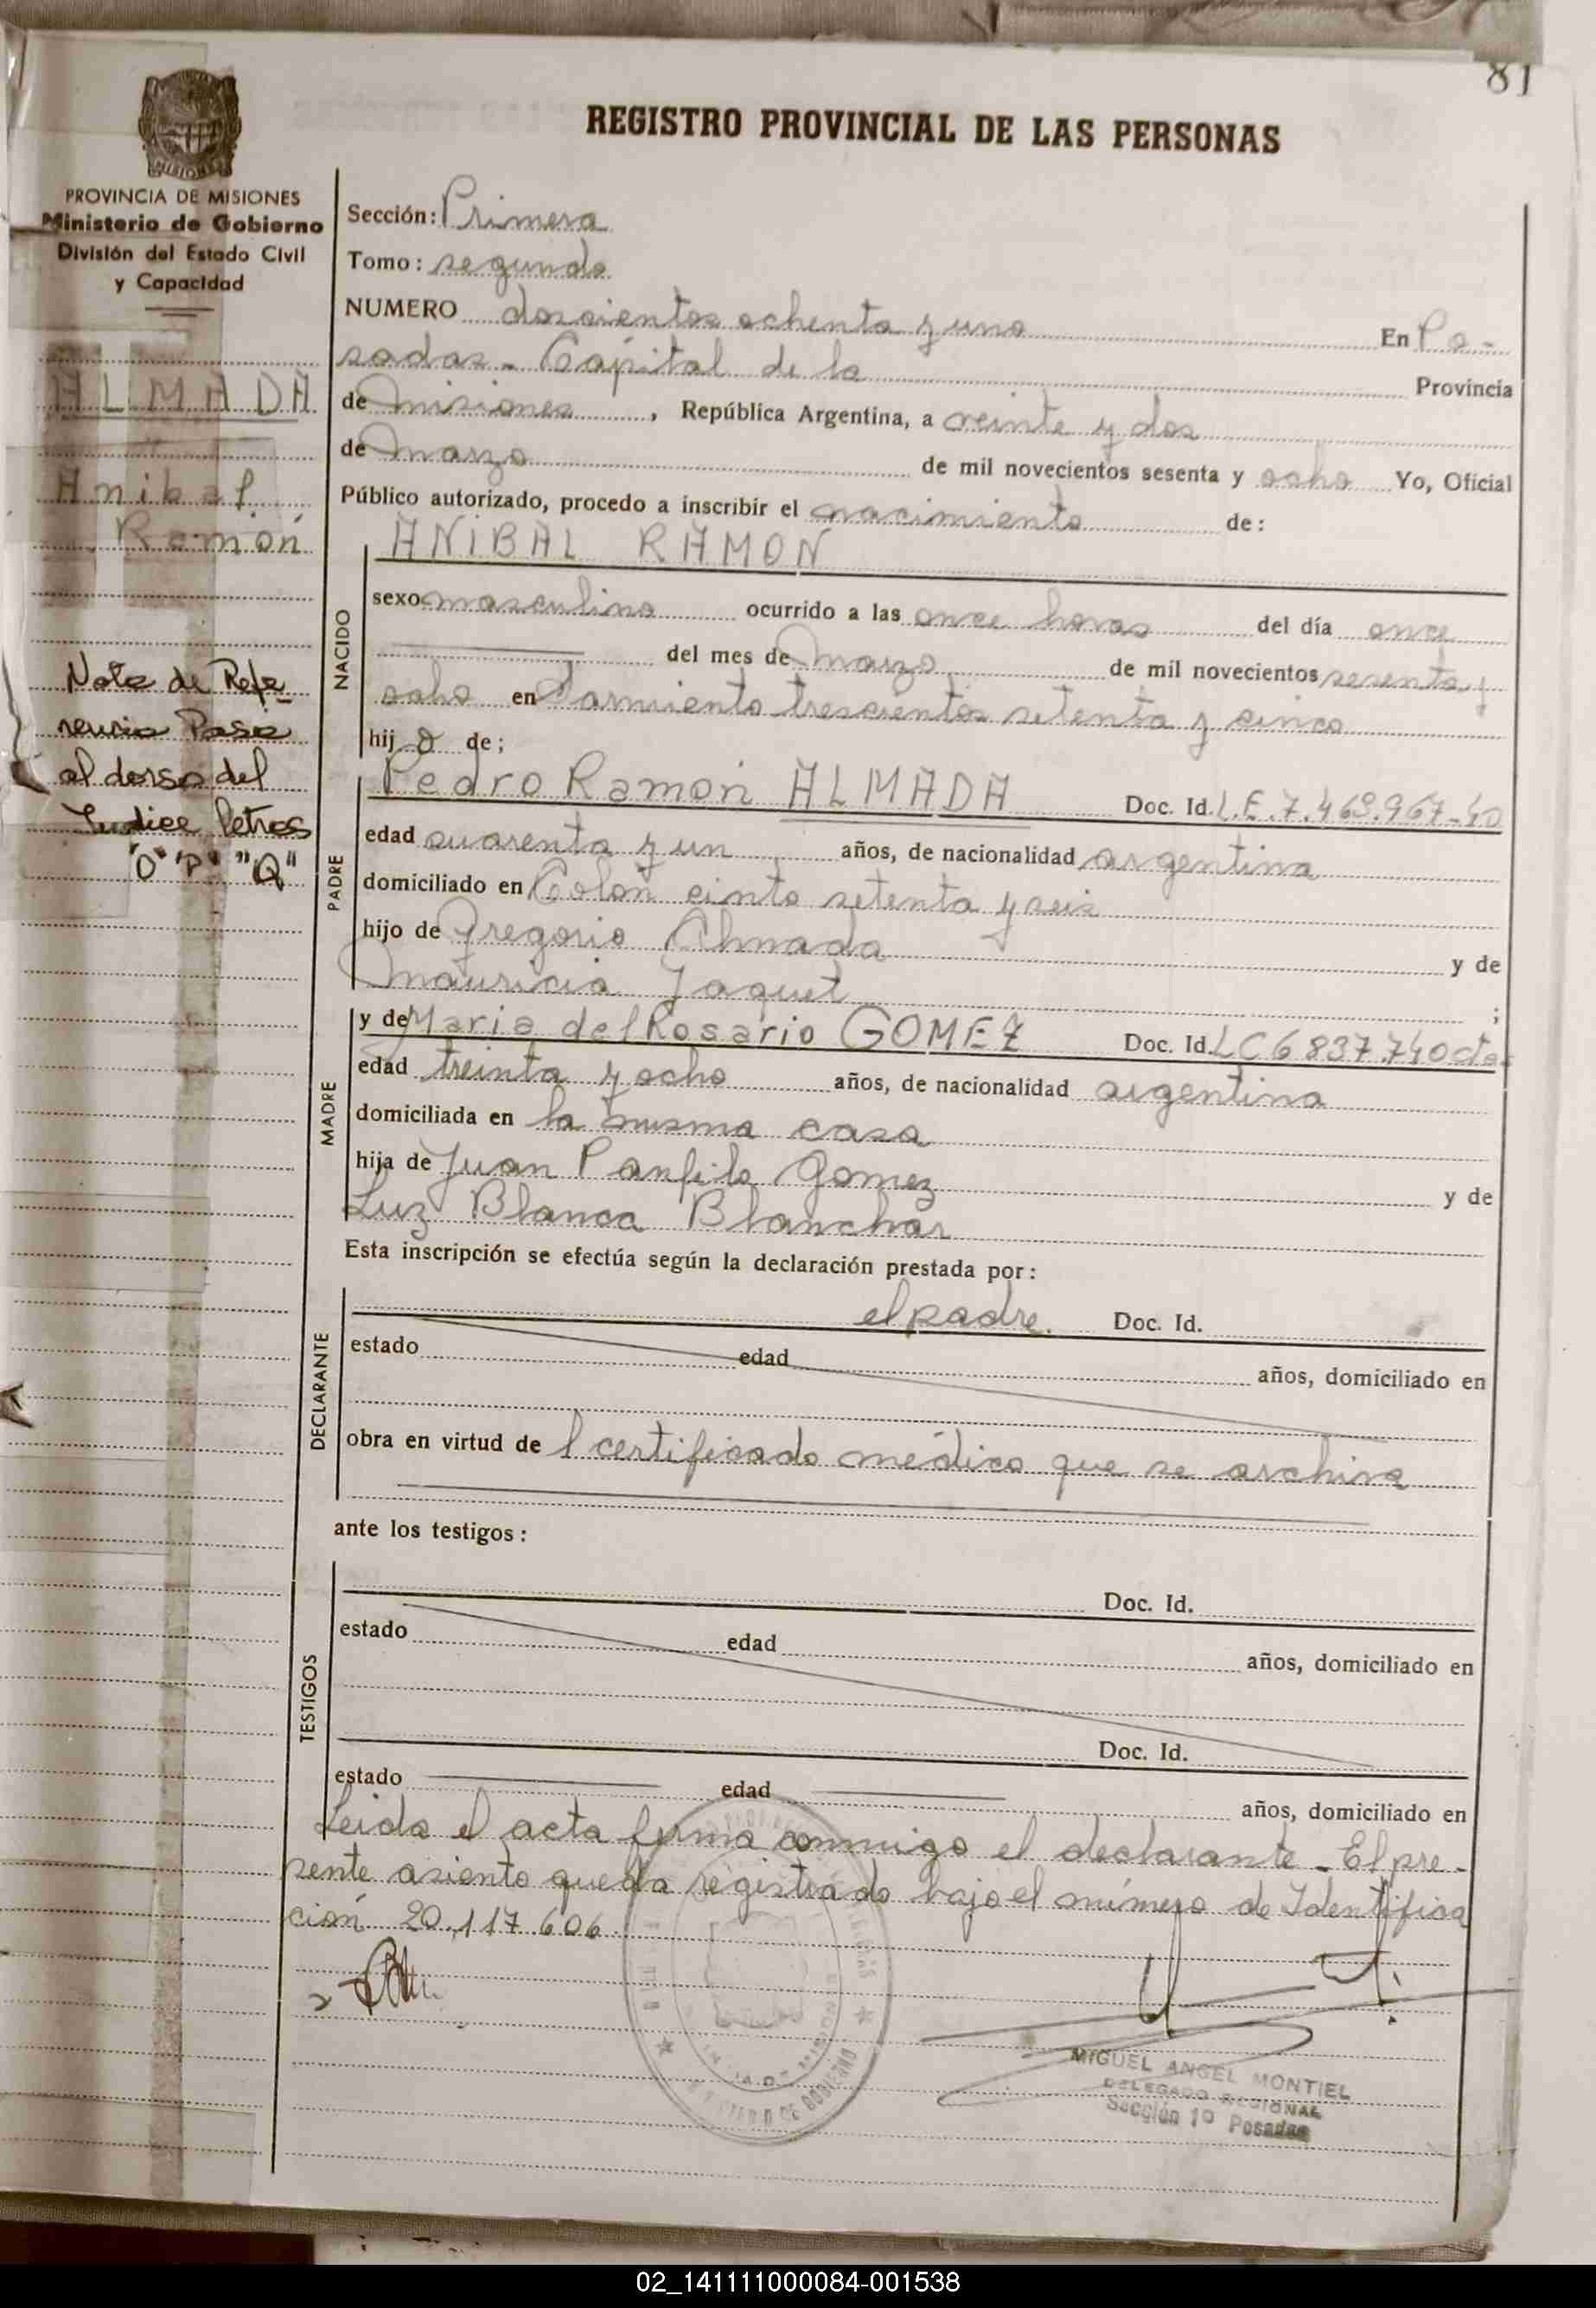 81
REGISTRO PROVINCIAL DE LAS PERSONAS
MISIONES
PROVINCIA DE MISIONES
Ministerio de Gobierno
División del Estado Civil
y Capacidad
ALMADA
Anibal
Ramón
Nota de Refe
rencia Pasa
al dorso del
Indice letras
"O" "P" "Q"
Sección: Primera
Tomo: segundo
NUMERO doscientos ochenta y uno En Po-
sadas - Capital de la Provincia
de Misiones, República Argentina, a veinte y dos
de Marzo de mil novecientos sesenta y ocho Yo, Oficial
Público autorizado, procedo a inscribir el nacimiento de:
ANIBAL RAMON
NACIDO
sexo masculino ocurrido a las once horas del día once
del mes de Marzo de mil novecientos sesenta y
ocho en Sarmiento trescientos setenta y cinco
hij o de;
Pedro Ramon ALMADA Doc. Id. L.E.7.469.967-40
PADRE
edad cuarenta y un años, de nacionalidad argentina
domiciliado en Colon cinto setenta y seis
hijo de Gregorio Almada y de
Mauricia Jaquet ;
y de Maria del Rosario GOMEZ Doc. Id. LC 6837.740
MADRE
edad treinta y ocho años, de nacionalidad argentina
domiciliada en la misma casa
hija de Juan Panfilo Gomez y de
Luz Blanca Blanchar
Esta inscripción se efectúa según la declaración prestada por:
el padre. Doc. Id.
DECLARANTE
estado edad años, domiciliado en
obra en virtud de l certificado médico que se archiva
ante los testigos:
Doc. Id.
TESTIGOS
estado edad años, domiciliado en
Doc. Id.
estado edad años, domiciliado en
Leida el acta firma conmigo el declarante - El pre-
sente asiento queda registrado bajo el número de Identifica
ción 20.117.606
MIGUEL ANGEL MONTIEL
DELEGADO REGIONAL
Sección 1º Posadas
02_141111000084-001538